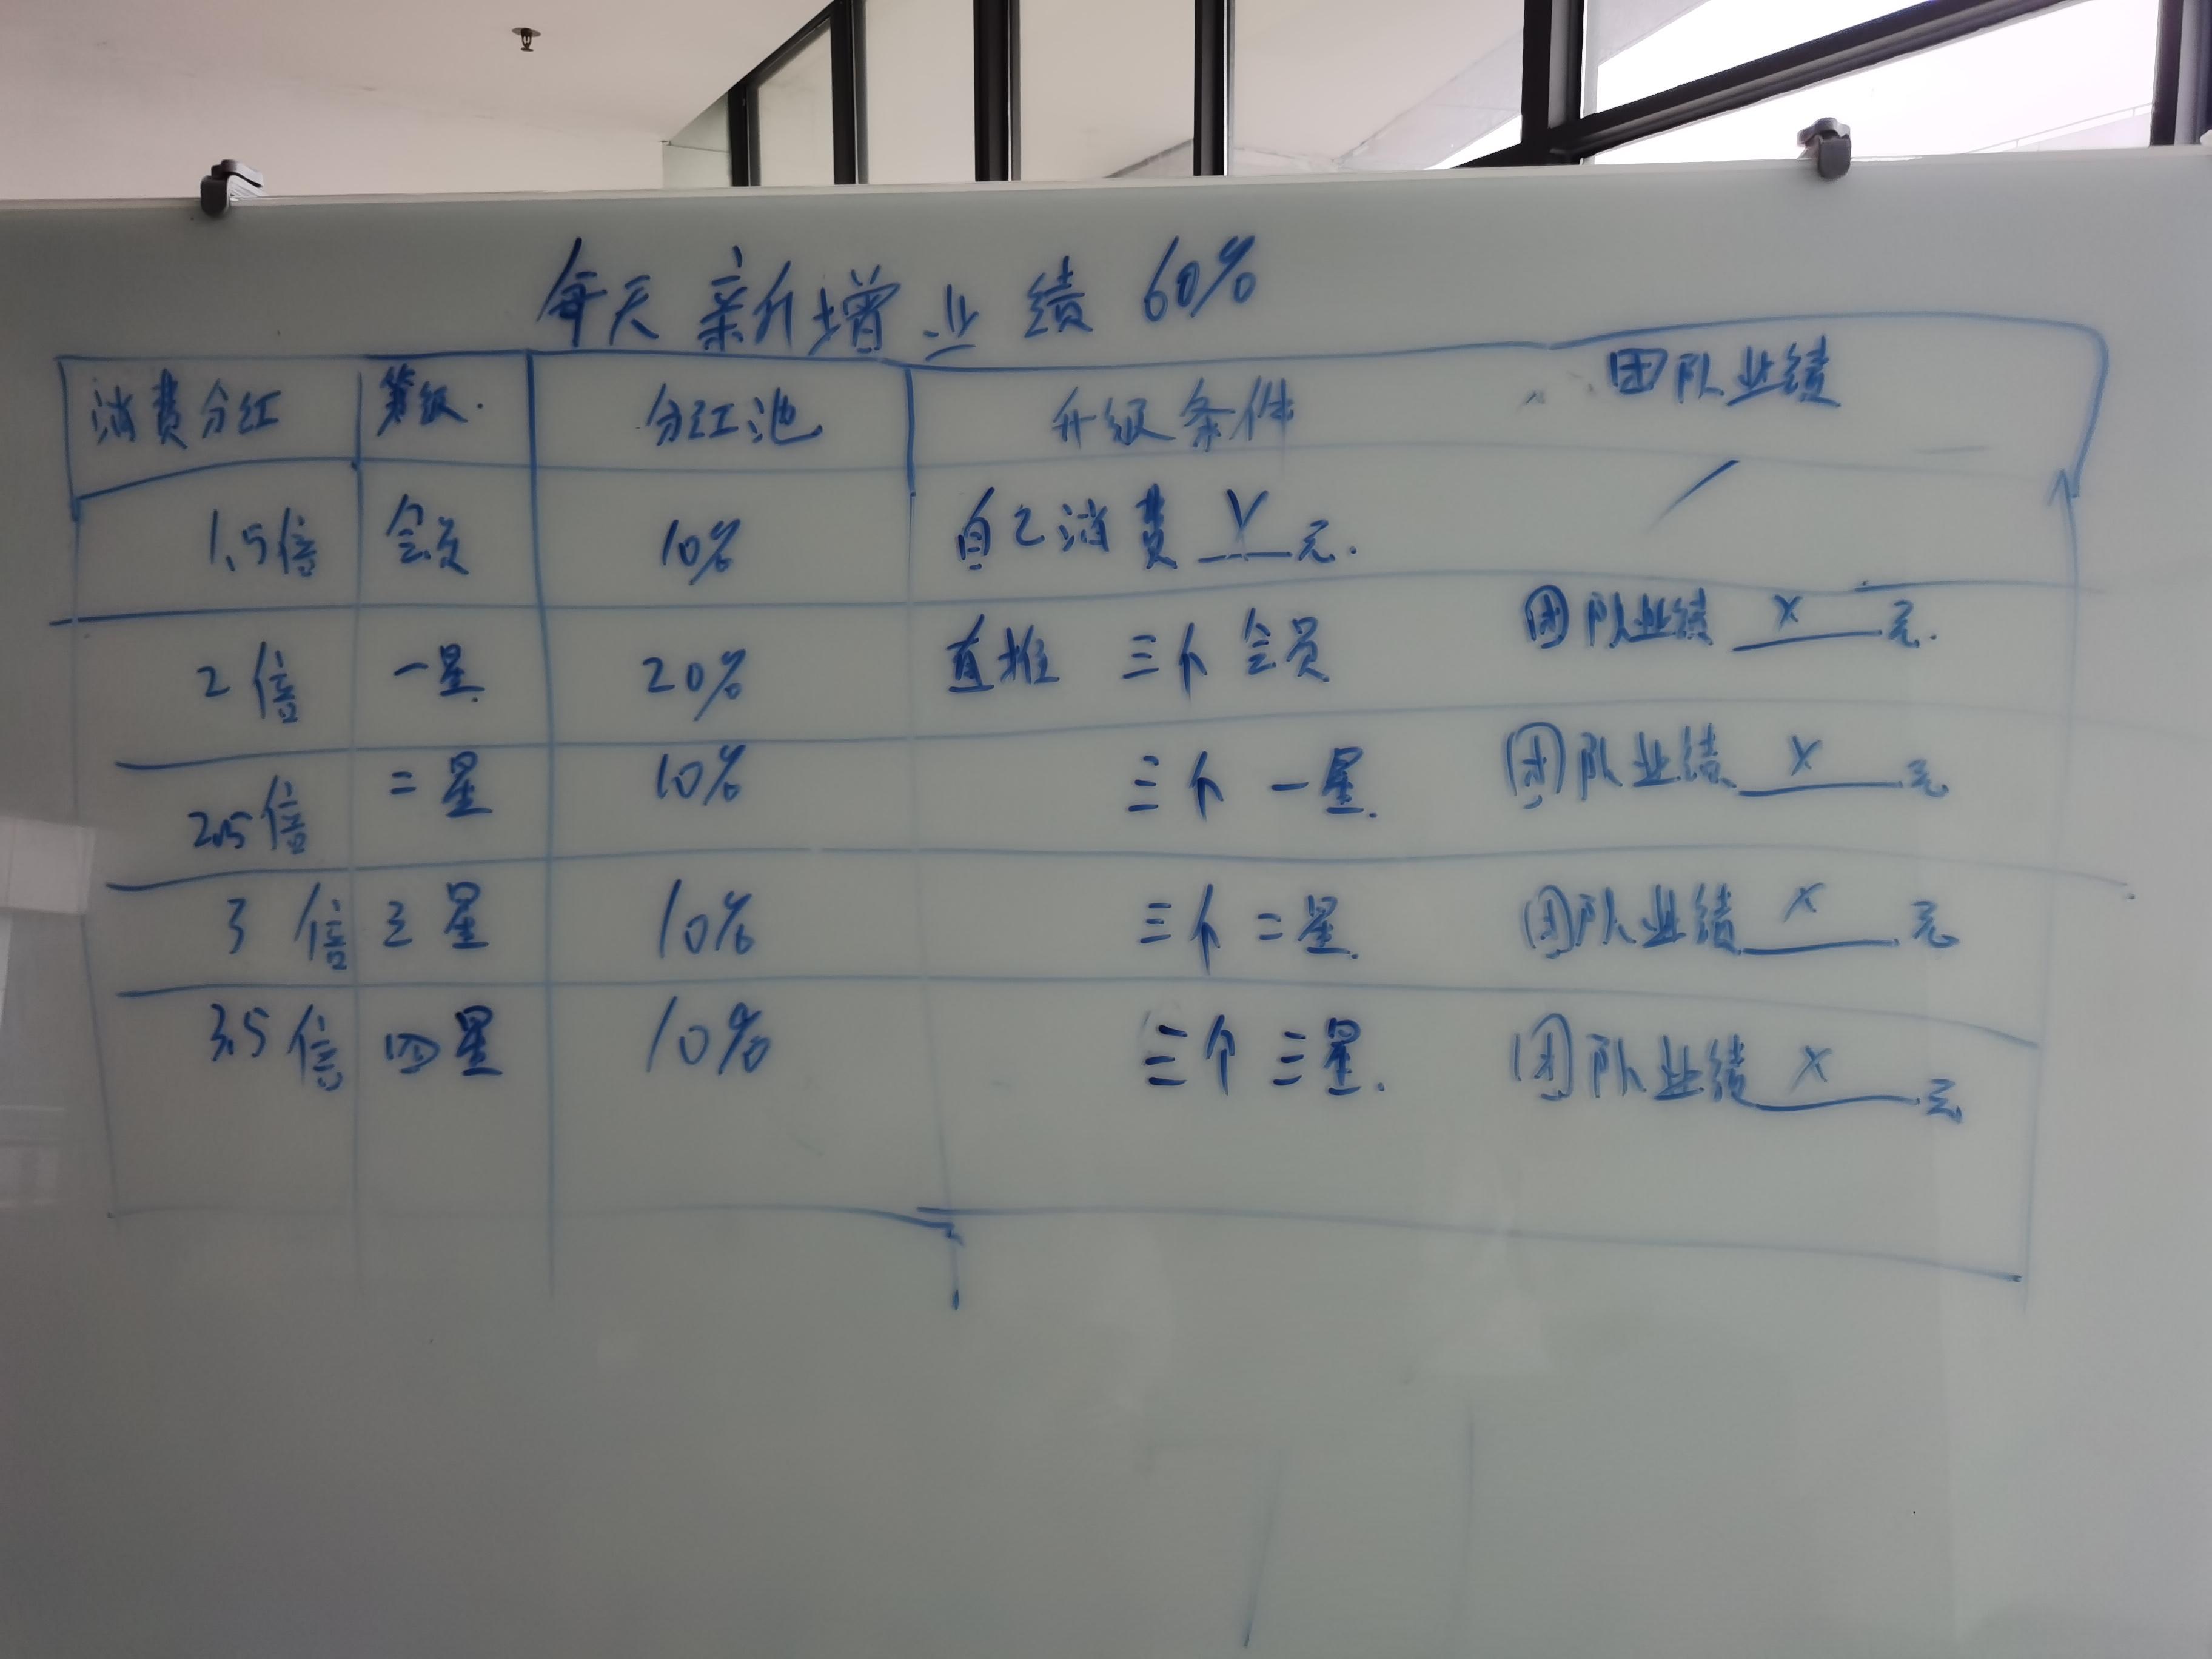 每天新增业绩 60%
消费分红 等级. 分红池 升级条件 团队业绩
1.5倍 会员 10% 自己消费 Y 元. /
2倍 一星 20% 直推 三个会员 团队业绩 X 元.
2.5倍 二星 10% 三个一星. 团队业绩 X 元
3倍 三星 10% 三个二星. 团队业绩 X 元
3.5倍 四星 10% 三个三星. 团队业绩 X 元